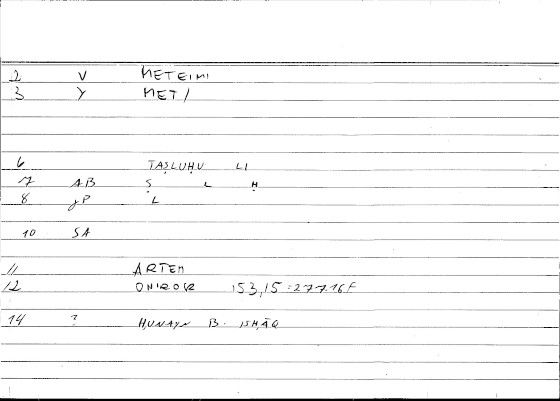 2 V ΜΕΤΕΙΜΙ
3 Y ΜΕΤ/
6 TAṢLUḤU LI
7 AB Ṣ L Ḥ
8 gP L
10 SA
11 ARTEM
12 ONIROKR 153,15 = 277.16F
14 ? ḤUNAYN B. ISḤĀQ